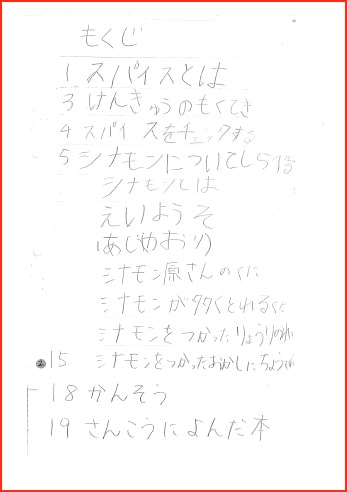 もくじ
1 スパイスとは
3 けんきゅうのもくてき
4 スパイスをチェックする
5 シナモンについてしらべる
シナモンとは
えいようそ
あじやかおり
シナモン原さんのくに
シナモンが多くとれるくに
シナモンをつかったりょうりのれい
15 シナモンをつかったおかしにちょうせん
18 かんそう
19 さんこうによんだ本